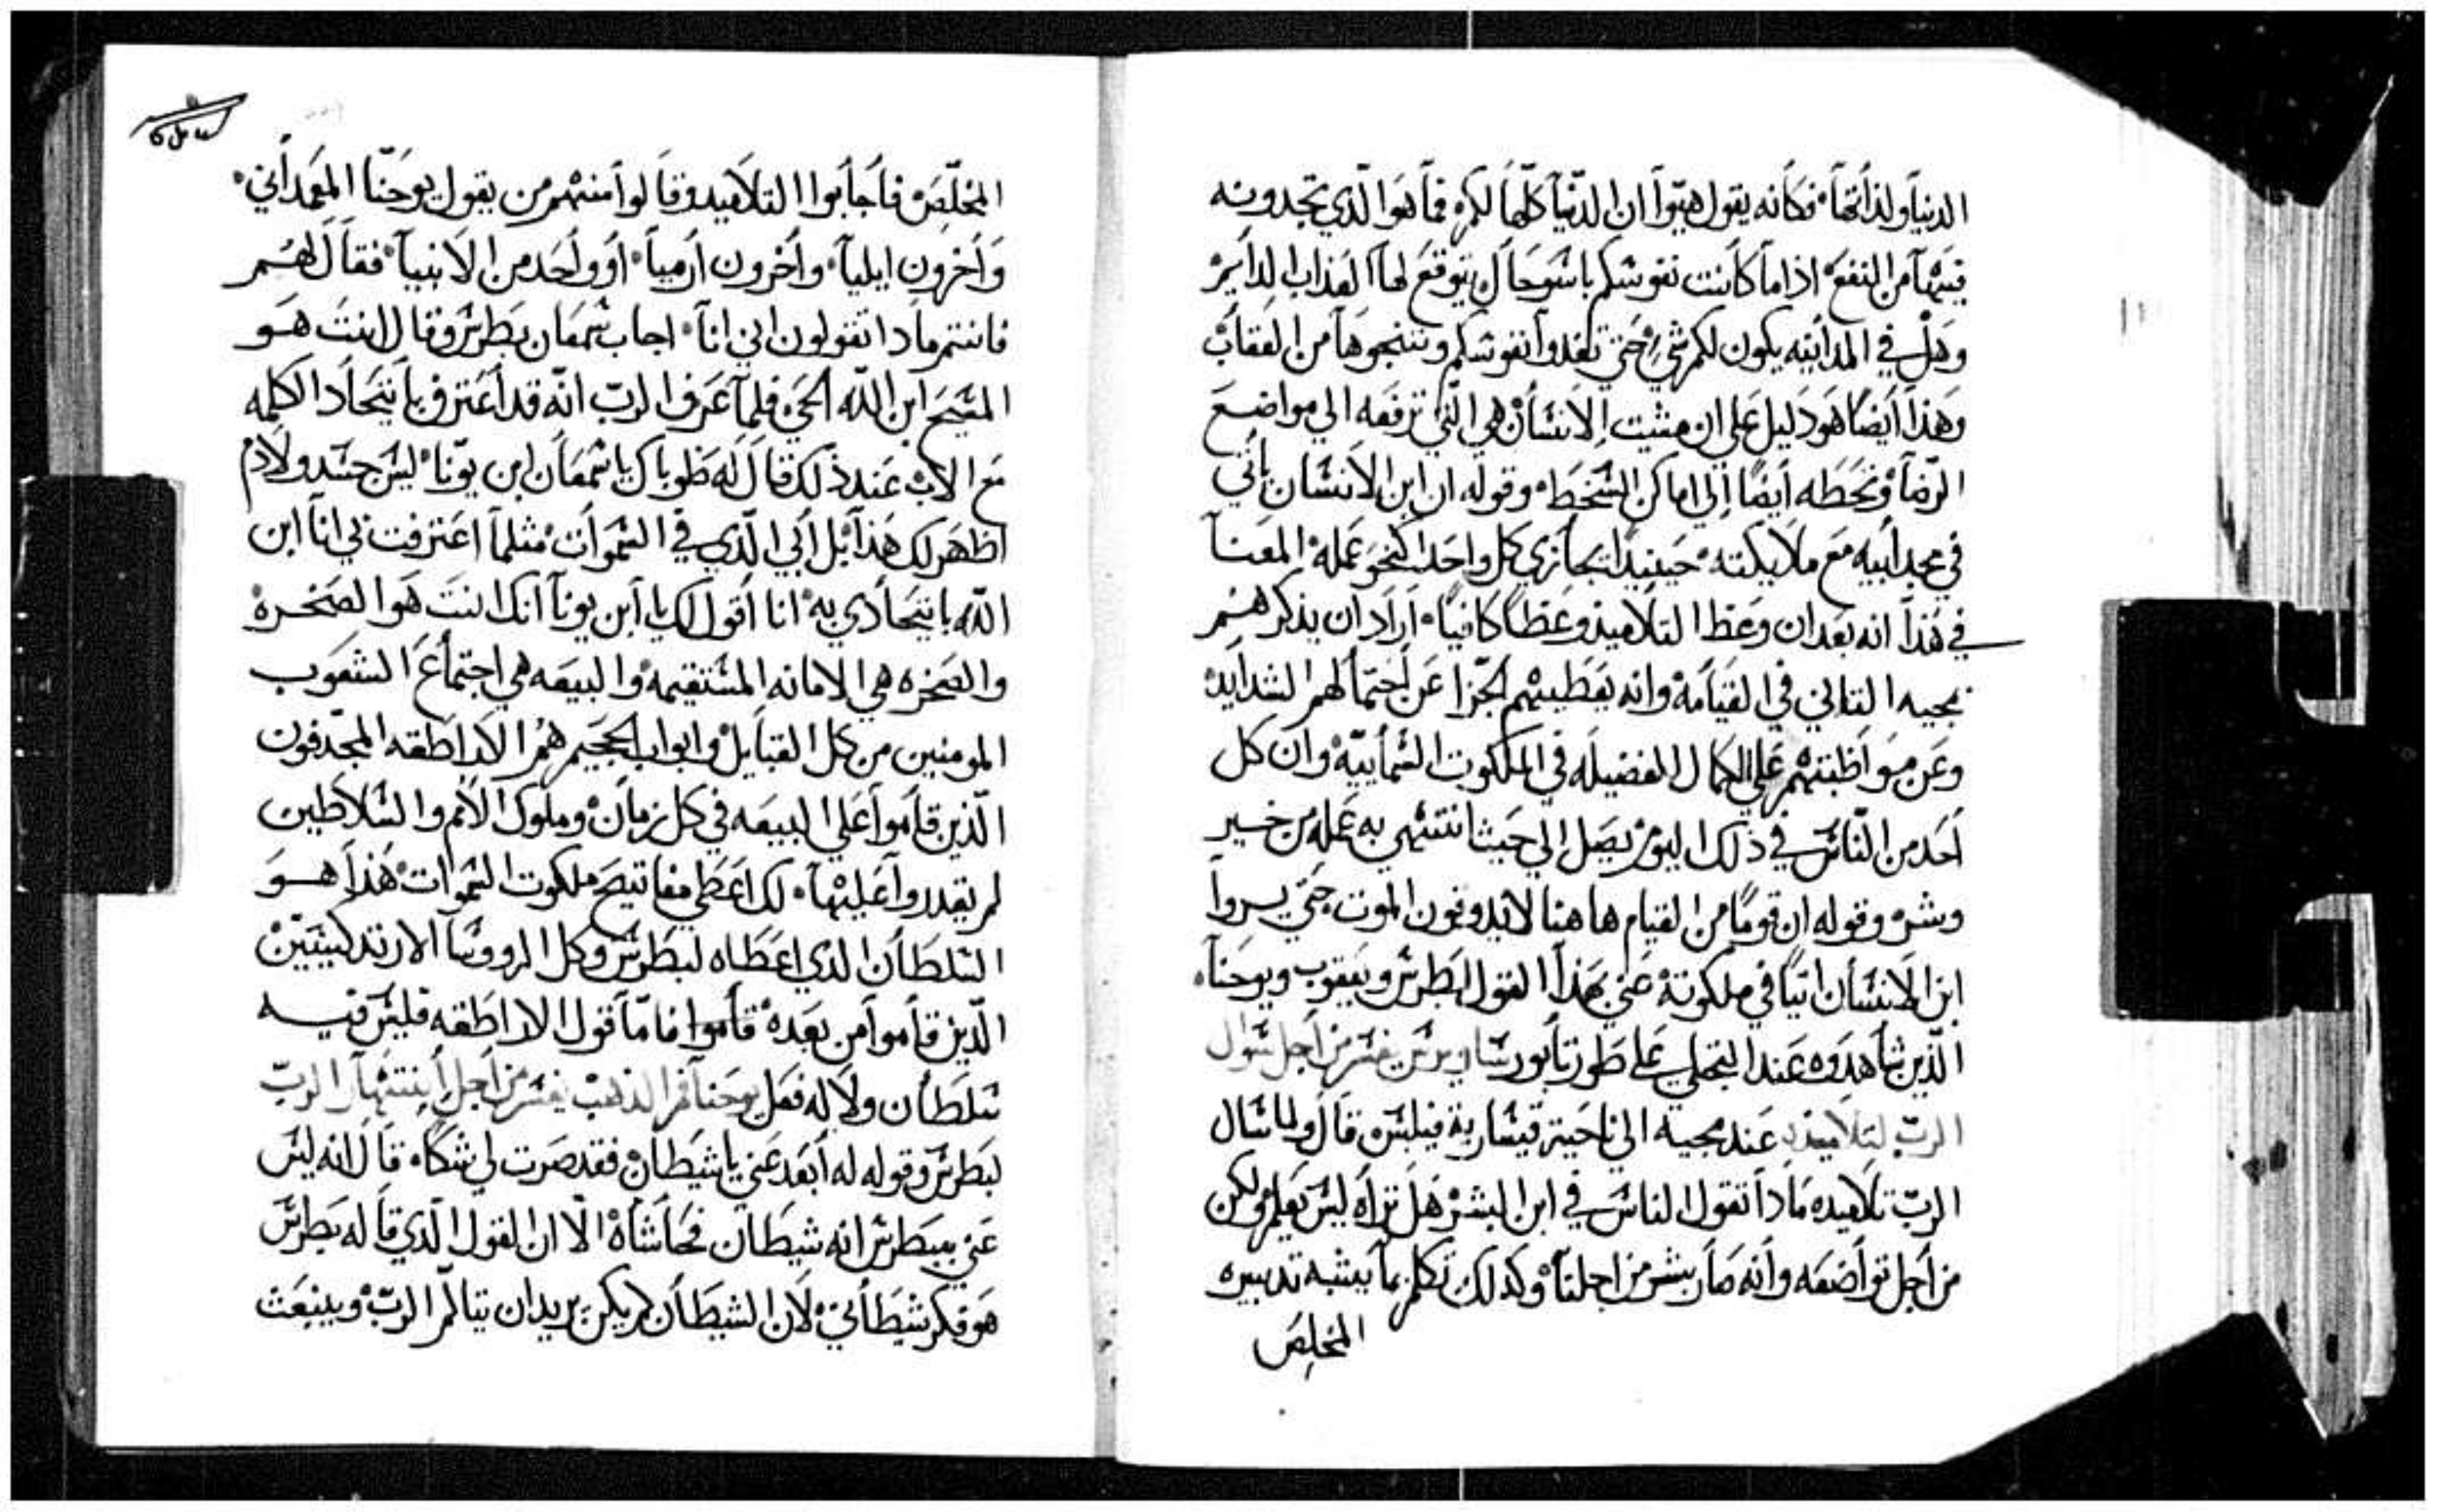 الدنيا ولذاتها فكانه يقول هبوا ان الدنيا كلها لكم فما هوا الذي تجدونه
فيها من النفع اذا ما كانت نفوسكم باسوحال يتوقع لها العذاب الدايم
وهل في المداينه يكون لكم شي حتي تفدوا نفوسكم وتنجوها من العقاب
وهذا ايضا هو دليل علي ان مشيت الانسان هي التي ترفعه الي مواضع
الرضا وتحطه ايضا الي اماكن السخط وقوله ان ابن الانسان ياتي
في مجد ابيه مع ملايكته حينيدا يجازي كل واحدا كنحو عمله المعنا
في هذا انه بعد ان وعظ التلاميد وعظا كافيا اراد ان يذكرهم
بمجيه التاني في القيامه وانه يعطيهم الجزا عن احتمالهم الشدايد
وعن مواظبتهم علي اكمال الفضيله في الملكوت السماييه وان كل
احد من الناس في ذلك اليوم يصل الي حيث انتهي به عمله من خير
وشر وقوله ان قوما من القيام ها هنا لا يدوقون الموت حتي يروا
ابن الانسان اتيا في ملكوته عني بهذا القول بطرس ويعقوب ويوحنا
الذين شاهدوه عند التجلي علي طور تابور ساويرس يفسر من اجل سوال
الرب لتلاميذه عند مجيه الي ناحية قيسارية فيلبس قال ولما سال
الرب تلاميده مادا تقول الناس في ابن البشر هل تراه ليس يعلم ولكن
من اجل تواضعه وانه صار بشر من اجلنا وكدلك تكلم بما يشبه تدبيره
المخلص
المخلص فاجابوا التلاميد وقالوا منهم من يقول يوحنا المعمداني
واخرون ايليا واخرون ارميا او واحد من الانبيا فقال لهم
فانتم مادا تقولون اني انا اجاب شمعان بطرس وقال انت هو
المسيح ابن الله الحي فلما عرف الرب انه قد اعترف باتحاد الكلمه
مع الاب عند ذلك قال له طوباك ياشمعان ابن يونا ليس جسد ولا دم
اظهر لك هذا بل ابي الذي في السموات مثلما اعترفت بي انا ابن
الله باتحادي به انا اقول لك يا ابن يونا انك انت هو الصخره
والصخره هي الامانه المستقيمه والبيعه هي اجتماع الشعوب
المومنين من كل القبايل وابواب الجحيم هم الاراطقه المجدفون
الذين قاموا علي البيعه في كل زمان وملوك الامم والسلاطين
لم يقدروا عليها لك اعطي مفاتيح ملكوت السموات هذا هو
السلطان الذي اعطاه لبطرس وكل الروسا الارتدكسيين
الذين قاموا من بعده قاموا فاما قول الاراطقه فليس فيه
سلطان ولا له فعل يوحنا فم الذهب يفسر من اجل انتهار الرب
لبطرس وقوله له ابعد عني ياشيطان فقد صرت لي شكاه قال انه ليس
عني ببطرس انه شيطان فحاشاه الا ان القول الذي قاله بطرس
هو فكر شيطاني لان الشيطان لم يكن يريد ان يتالم الرب وينبعث